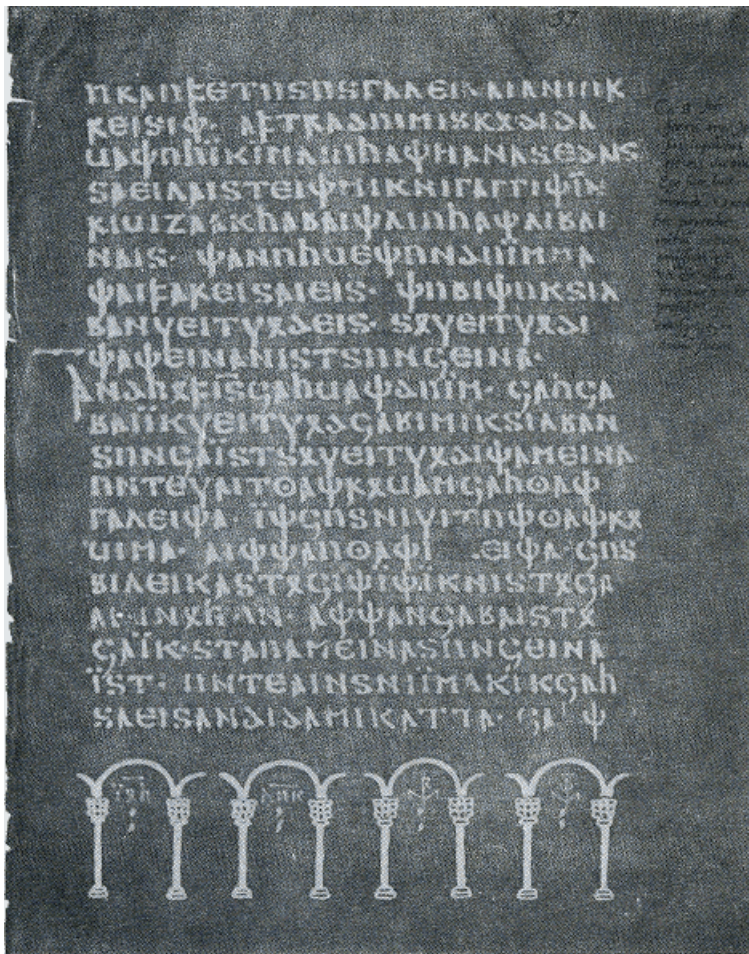 𐍀𐍂𐌰𐌿𐍆𐌴𐍄𐌿𐍃𐌿𐍃𐌲𐌰𐌻𐌴𐌹𐌻𐌰𐌹𐌰𐌽𐌹𐌿𐍂
𐍂𐌴𐌹𐍃𐌹𐌸· 𐌰𐍆𐍄𐍂𐌰𐌳𐌿𐌹𐌼𐌹𐍃𐍂𐍉𐌳𐌹𐌳𐌰
𐌵𐌰𐌸𐌿𐌷𐌹̈𐌺𐌹𐌼𐌻𐌹𐌿𐌷𐌰𐌸𐌼𐌰𐌽𐌰𐍃𐌴𐌳𐌰𐌹𐍃
𐍃𐌰𐌴𐌹𐌻𐌰𐌹𐍃𐍄𐌴𐌹𐌸𐌼𐌹𐌺𐌽𐌹𐌲𐌰𐌲𐌲𐌹𐌸𐌹̈𐌽
𐍂𐌹𐌵𐌹𐌶𐌰𐌰𐌺𐌷𐌰𐌱𐌰𐌹𐌸𐌻𐌹𐌿𐌷𐌰𐌸𐌻𐌹𐌱𐌰𐌹
𐌽𐌰𐌹𐍃· 𐌸𐌰𐌽𐌿𐌷𐌵𐌴𐌸𐌿𐌽𐌳𐌿𐌹̈𐌼𐌼𐌰
𐌸𐌰𐌹𐍆𐌰𐍂𐌴𐌹𐍃𐌰𐌹𐌴𐌹𐍃· 𐌸𐌿𐌱𐌹𐌸𐌿𐌺𐍃𐌹𐌻
𐌱𐌰𐌽𐍅𐌴𐌹𐍄𐍅𐍉𐌳𐌴𐌹𐍃· 𐍃𐍉𐍅𐌴𐌹𐍄𐍅𐍉𐌳𐌹
𐌸𐌰𐌸𐌴𐌹𐌽𐌰𐌽𐌹𐍃𐍄𐍃𐌿𐌽𐌾𐌴𐌹𐌽𐌰·
𐌰𐌽𐌳𐌷𐍉𐍆𐌹̈𐍃𐌾𐌰𐌷𐌵𐌰𐌸𐌳𐌿𐌹̈𐌼· 𐌾𐌰𐌷𐌾𐌰
𐌱𐌰𐌹𐌹̈𐌺𐍅𐌴𐌹𐍄𐍅𐍉𐌳𐌾𐌰𐌱𐌹𐌼𐌹𐌺𐍃𐌹𐌻𐌱𐌰𐌽
𐍃𐌿𐌽𐌾𐌰𐌹̈𐍃𐍄𐍃𐍉𐍅𐌴𐌹𐍄𐍅𐍉𐌳𐌹𐌸𐌰𐌼𐌴𐌹𐌽𐌰
𐌿𐌽𐍄𐌴𐍅𐌰𐌹𐍄𐍈𐌰𐌸𐍂𐍉𐌵𐌰𐌼𐌾𐌰𐌷𐍈𐌰𐌸
𐌲𐌰𐌻𐌴𐌹𐌸𐌰· 𐌹̈𐌸𐌾𐌿𐍃𐌽𐌹𐍅𐌹𐍄𐌿𐌸𐍈𐌰𐌸𐍂𐍉
𐌵𐌹𐌼𐌰· 𐌰𐌹𐌸𐌸𐌰𐌿𐍈𐌰𐌸𐌲𐌰𐌻𐌴𐌹𐌸𐌰· 𐌾𐌿𐍃
𐌱𐌹𐌻𐌴𐌹𐌺𐌰𐍃𐍄𐍉𐌾𐌹𐌸𐌹̈𐌸𐌹̈𐌺𐌽𐌹𐍃𐍄𐍉𐌾𐌰
𐌰𐌹𐌽𐌽𐍉𐌷𐌿𐌽· 𐌰𐌸𐌸𐌰𐌽𐌾𐌰𐌱𐌰𐌹𐍃𐍄𐍉
𐌾𐌰𐌹̈𐌺· 𐍃𐍄𐌰𐌿𐌰𐌼𐌴𐌹𐌽𐌰𐍃𐌿𐌽𐌾𐌴𐌹𐌽𐌰
𐌹̈𐍃𐍄· 𐌿𐌽𐍄𐌴𐌰𐌹𐌽𐍃𐌽𐌹𐌹̈𐌼𐌰𐌺𐌹̈𐌺𐌾𐌰𐌷
𐍃𐌰𐌴𐌹𐍃𐌰𐌽𐌳𐌹𐌳𐌰𐌼𐌹𐌺𐌰𐍄𐍄𐌰· 𐌾𐌰𐌷𐌸